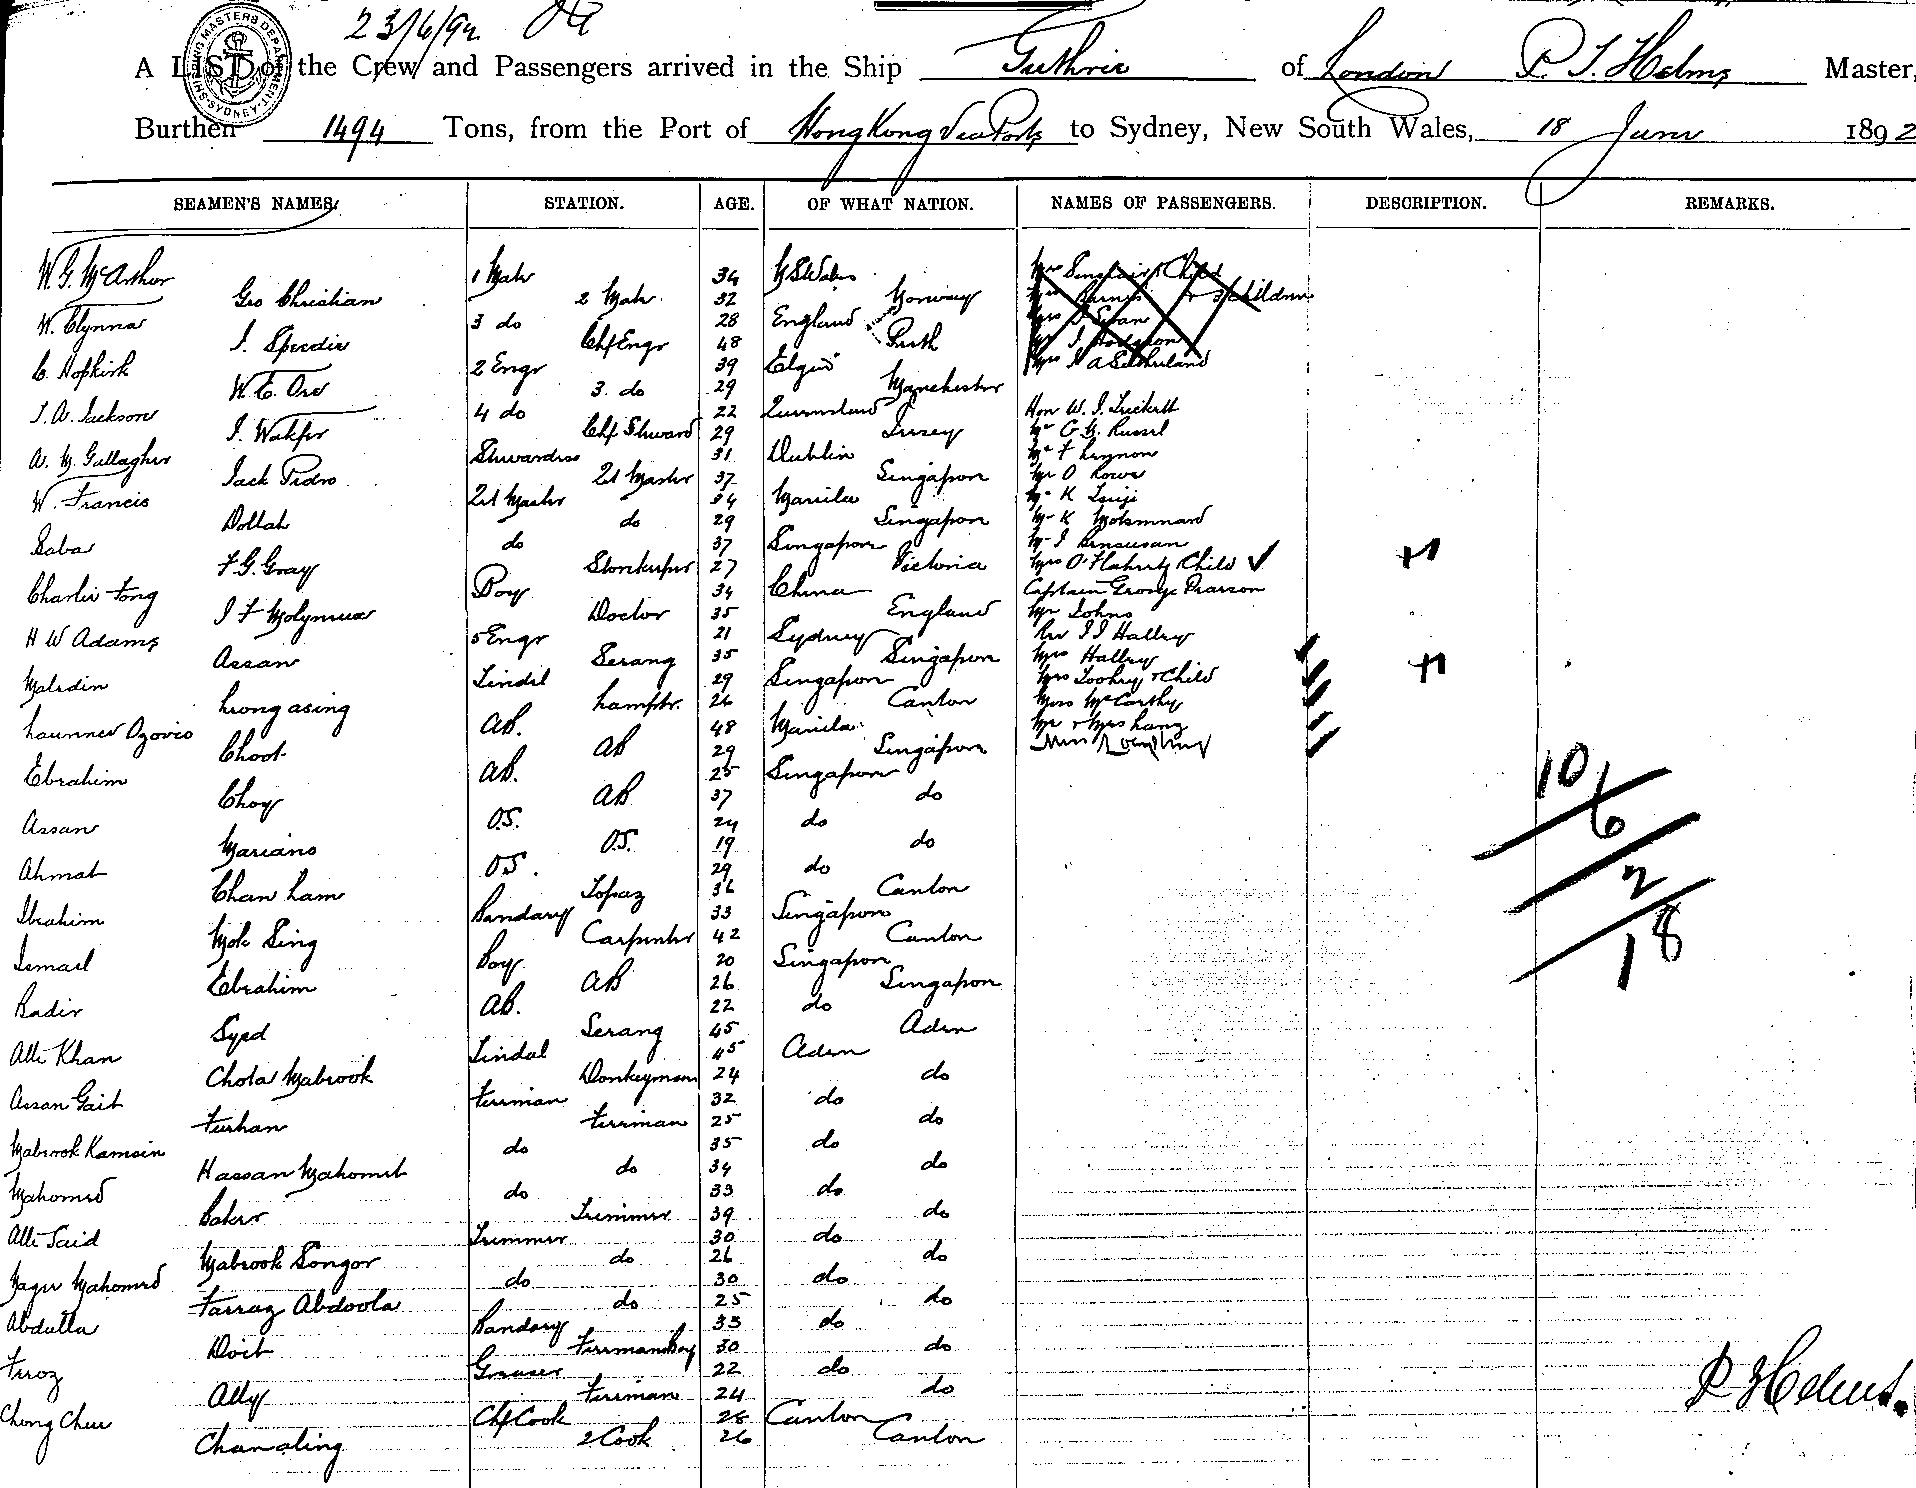 23/6/92
SHIPPING MASTERS DEPARTMENT SYDNEY
A LIST of the Crew and Passengers arrived in the Ship Guthrie of London P. T. Helms Master,
Burthen 1494 Tons, from the Port of Hong Kong via Ports to Sydney, New South Wales, 18 June 1892
SEAMEN'S NAMES. STATION. AGE. OF WHAT NATION. NAMES OF PASSENGERS. DESCRIPTION. REMARKS.
W. G. McArthur 1 Mate 34 N S Wales Mrs Sinclair & Child
Geo Christian 2 Mate 32 Norway Mrs 3 Children
W. 3 do 28 England Mrs
J. Speedie Chf Engr 48 Perth
C. Hopkirk 2 Engr 39 Elgin Sutherland
W. C. Orr 3 do 29 Manchester
J. W. Jackson 4 do 22 Queensland Hon W. J. Trickett
J. Walker Chf Steward 29 Jersey Mr G. H. Russel
A. M. Gallagher Stewardess 31 Dublin Mr F
Jack Pedro 2d Master 37 Singapore Mr O Rowe
W. Francis 2d Master 34 Manila Mr K
Dollah do 29 Singapore Mr K
Baba do 37 Singapore Mr J
F. G. Gray Storekeeper 27 Victoria Mrs O'Flaherty Child
Charlie Fong Boy 34 China Captain George Pearson
J F Molyneux Doctor 35 England Mr Johns
H W Adams 5 Engr 21 Sydney Rev J J Halley
Assan Serang 35 Singapore Mrs Halley
Maledin Tindal 29 Singapore Mrs Toohey & Child
Leong asing Lamptr. 26 Canton Miss McCarthy
AB. 48 Manila Mr & Mrs Lang
Choot AB 29 Singapore
Ebrahim AB. 25 Singapore
Choy AB 37 do
Assan O.S. 24 do
Mariano O.S. 19 do
Ahmat O.S. 29 do
Chan Lam Topaz 36 Canton
Ibrahim Bandary 33 Singapore
Mok Sing Carpenter 42 Canton
Ismael Boy 20 Singapore
Ebrahim AB 26 Singapore
Badir AB. 22 do
Syed Serang 45 Aden
Alli Khan Tindal 45 Aden
Chota Mabrook Donkeyman 24 do
Assan Gait Fireman 32 do
Furhan Fireman 25 do
Mabrook Kamsin do 35 do
Hassan Mahomet do 34 do
Mahomed do 33 do
Baker Trimmer 39 do
Alli Said Trimmer 30 do
Mabrook Songor do 26 do
Mahomed do 30 do
Farraz Abdoola do 25 do
Abdulla Bandary 33 do
Doit Firemans Boy 30 do
Feroz Greaser 22 do
Ally Fireman 24 do
Chong Chew Chf Cook 28 Canton
Chan aling 2 Cook 26 Canton
10
6
2
18
P T Helms.